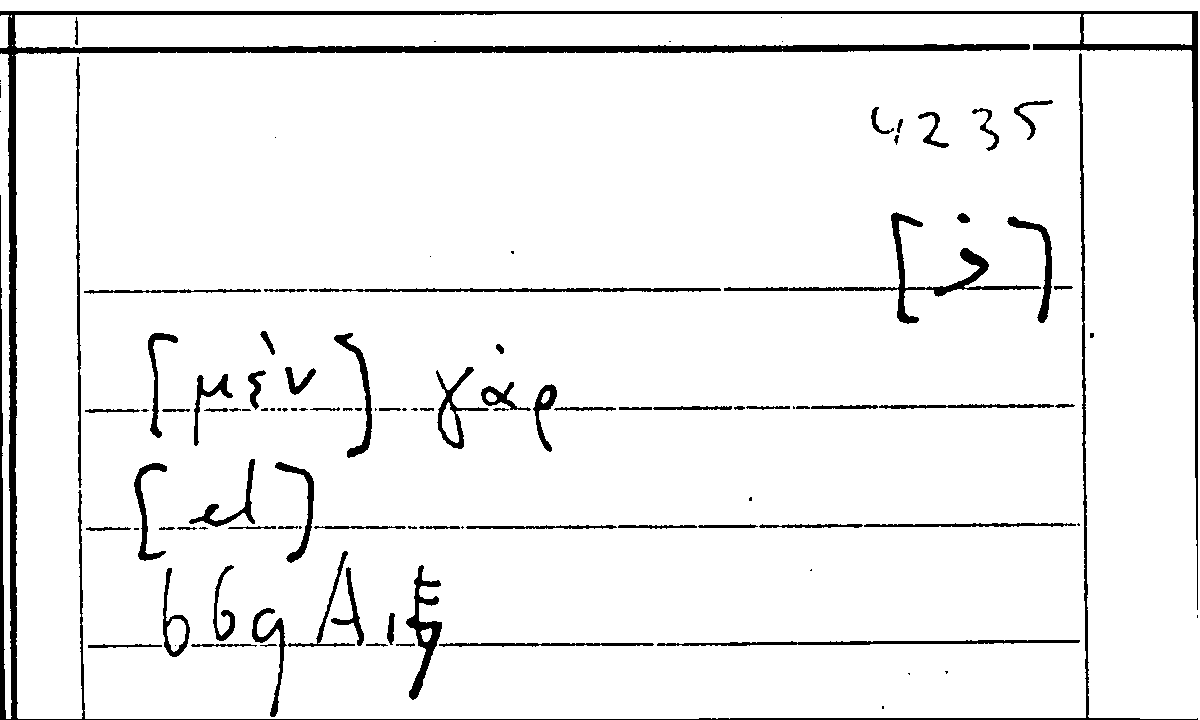 4235
[ز]
[μὲν] γὰρ
[el]
669 A, ξ